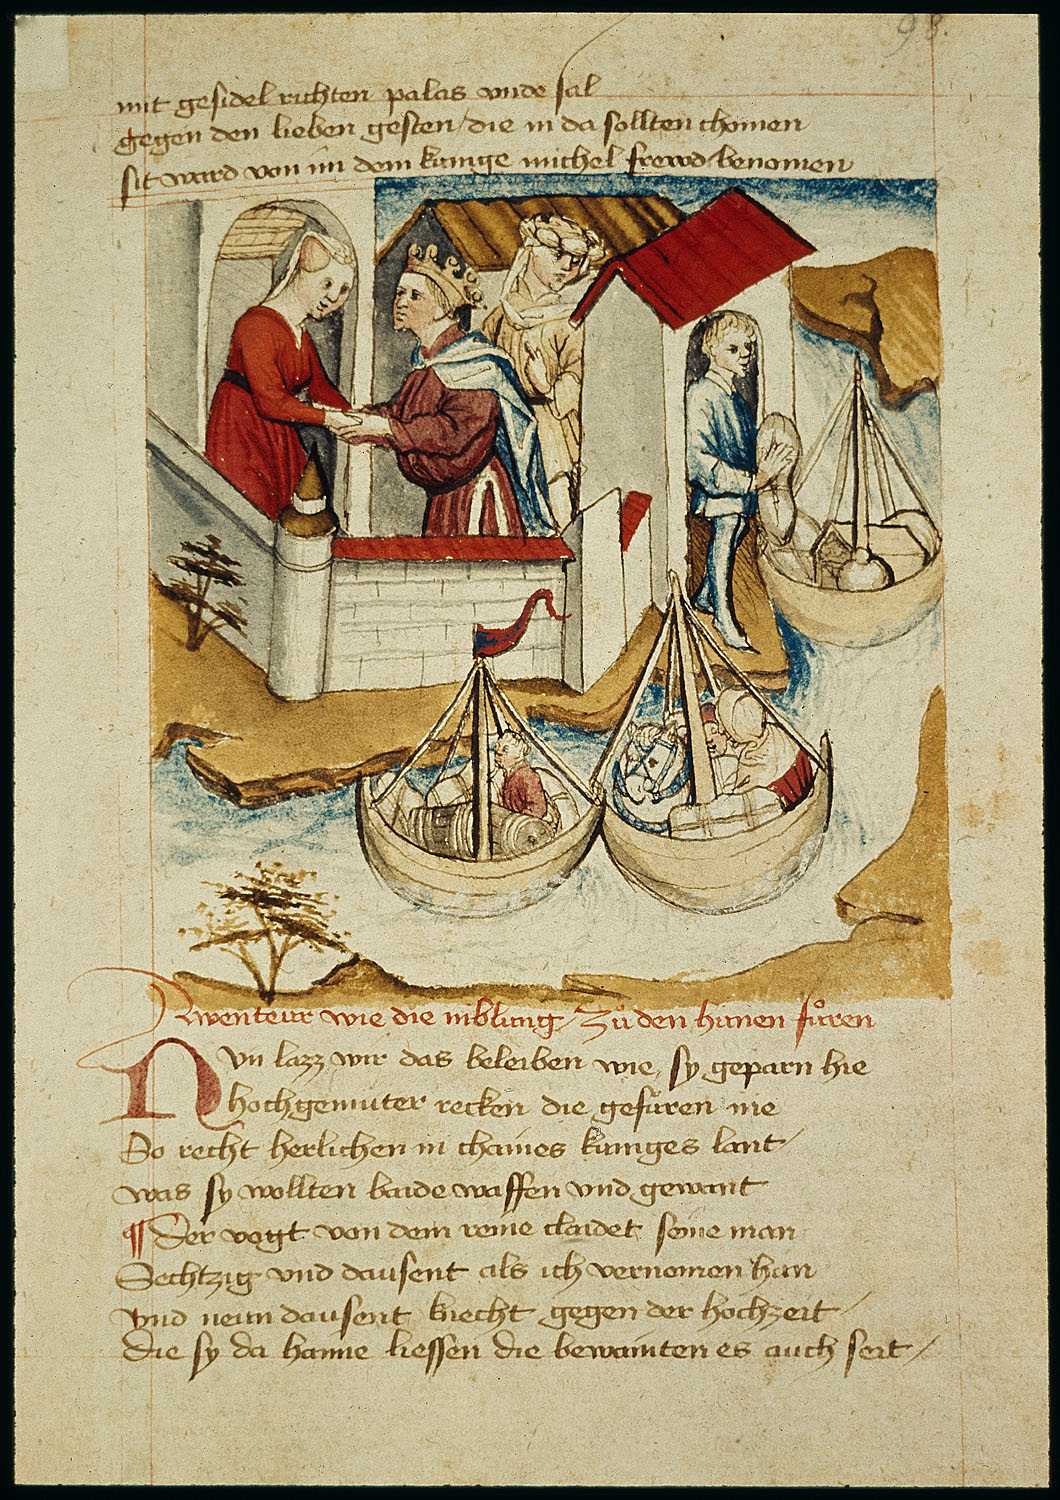 98.
mit gesidel richten palas vnde sal
gegen den lieben gesten / die in da sollten chomen
sit ward von im dem kunige michel frewd benomen
Awenteur wie die niblung / zů den hunen fůren
Nvn lazz wir das beleiben wie sy geparn hie
hochgemuter recken die gefuren nie
So recht herlichen in chaines kuniges lant /
was sy wollten baide waffen vnd gewant
¶ Der vogt von dem reine claidet seine man
Sechtzig vnd dausent als ich vernomen han
vnd neun dausent knecht gegen der hochzeit /
die sy da haime liessen die bewainten es auch seit /